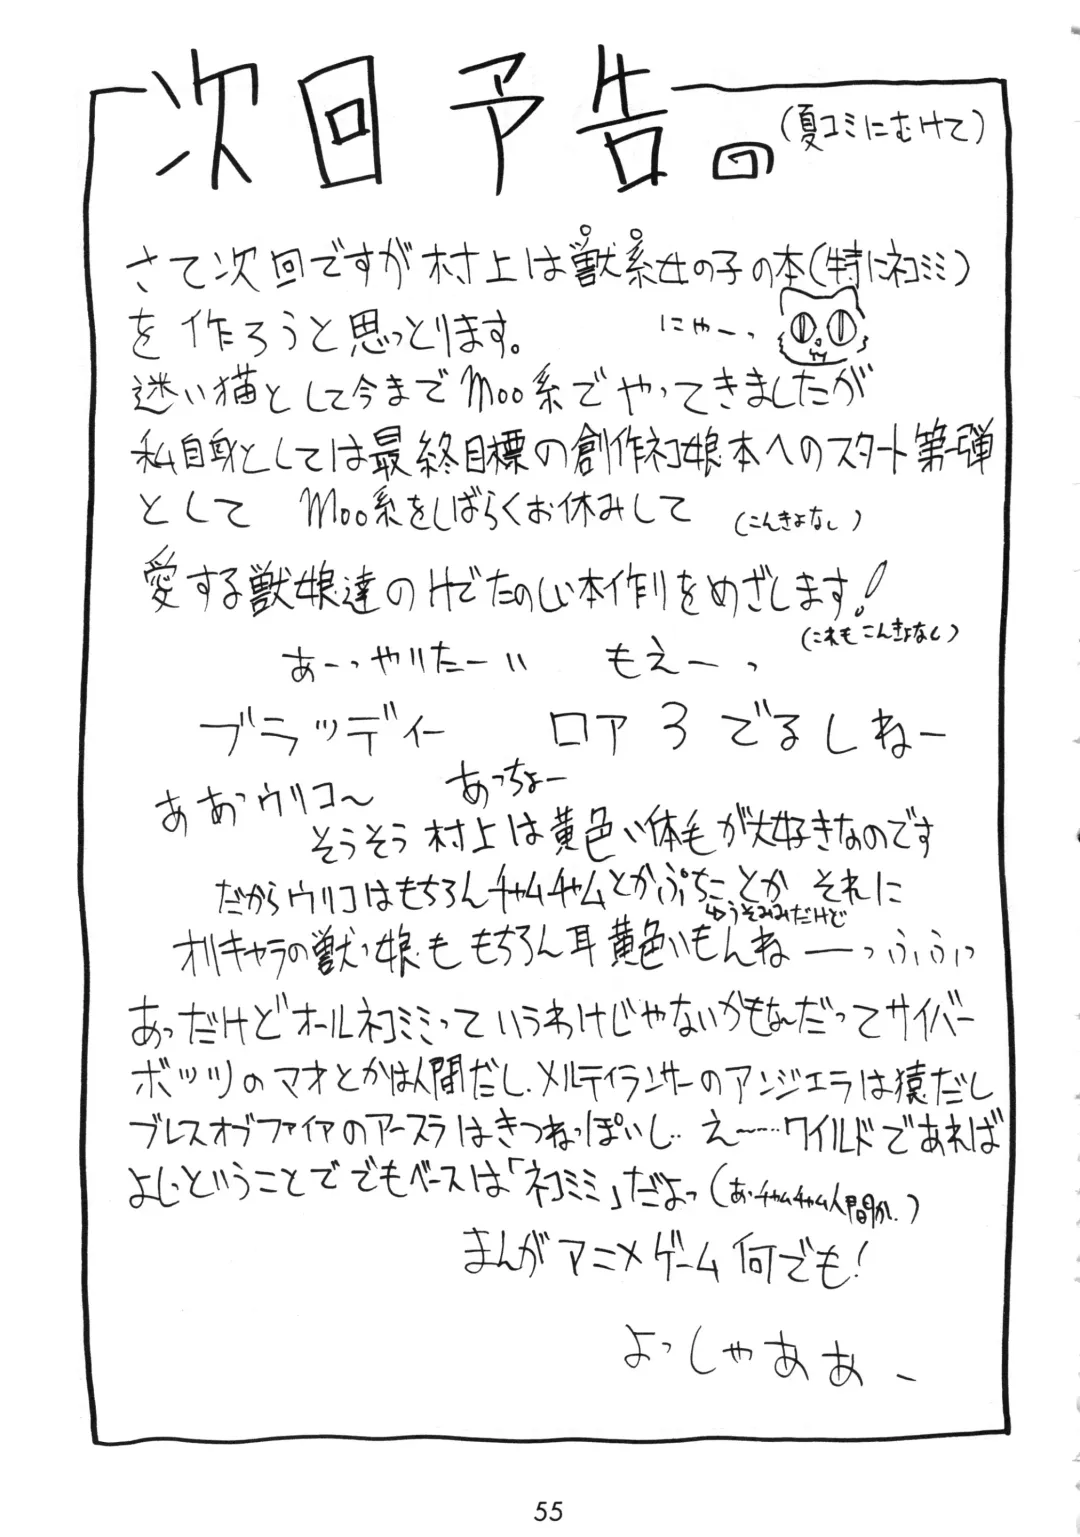 次回予告の
(夏コミにむけて)
さて次回ですが村上は獣系女の子の本(特にネコミミ)
を作ろうと思っとります。
にゃーっ
迷い猫として今までMoo系でやってきましたが
私自身としては最終目標の創作ネコ娘本へのスタート第一弾
として Moo系をしばらくお休みして
(こんきょなし)
愛する獣娘達の けでたのしい本作りをめざします!
(これもこんきょなし)
あーっやりたーい もえーっ
ブラッディー ロア3でるしねー
ああっウリコ〜 あっちょー
そうそう村上は黄色い体毛が大好きなのです
だからウリコはもちろんチャムチャムとかぷちことか それに
ゆうそみみだけど
オリキャラの獣っ娘ももちろん耳黄色いもんねーーっふふっ
あっだけどオールネコミミっていうわけじゃないかもな〜だってサイバー
ボッツのマオとかは人間だし、メルティランサーのアンジェラは猿だし
ブレスオブファイアのアースラはきつねっぽいし‥え〜……ワイルドであれば
よしということで でもベースは「ネコミミ」だよっ(あ・チャムチャム人間か、)
まんがアニメゲーム何でも!
よっしゃああー
55